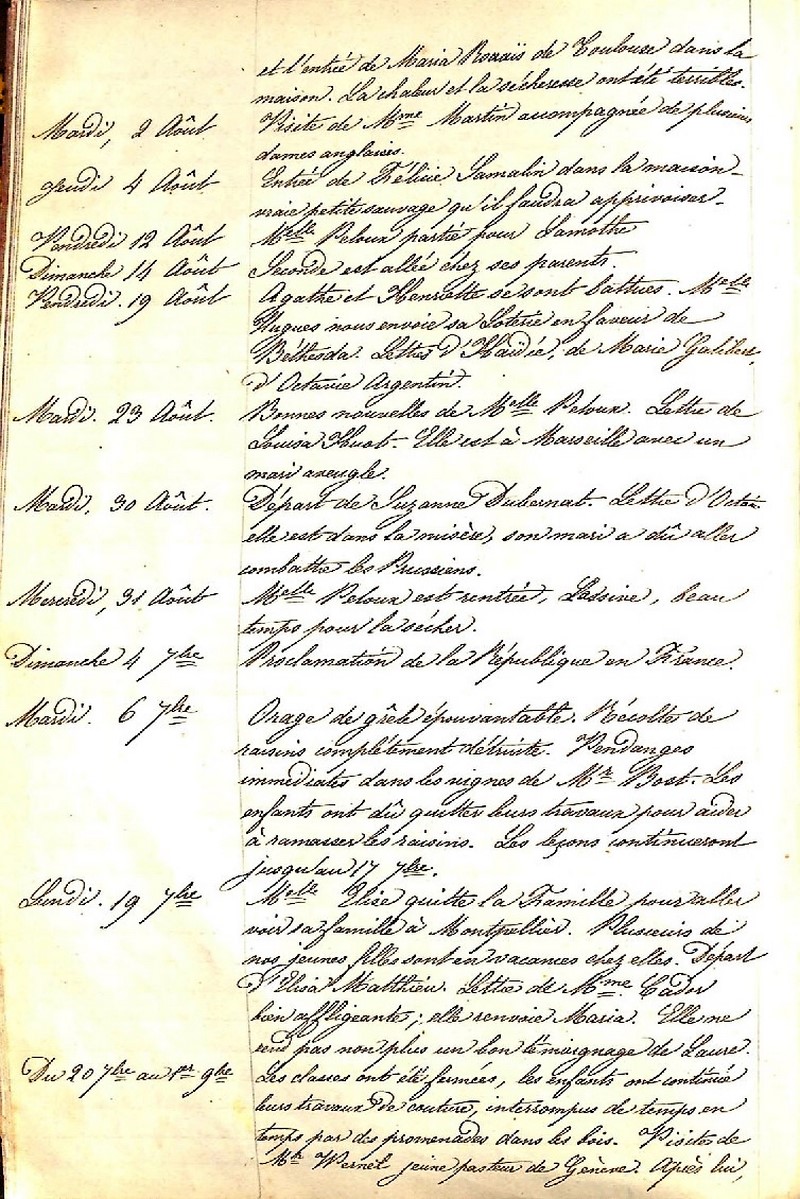 et l'entrée de Maria Rouaïs de Toulouse dans la
maison. La chaleur et la sécheresse ont été terribles.
Mardi, 2 Août Visite de Mme Martin accompagnée de plusieurs
dames anglaises.
Jeudi 4 Août Entrée de Félicie Lamalin dans la maison-
vraie petite sauvage qu'il faudra apprivoiser-
Vendredi 12 Août Melle Peloux partie pour Lamothe
Dimanche 14 Août Seconde est allée chez ses parents.
Vendredi. 19 Août Agathe et Henriette se sont battues. Melle
Hugues nous envoie sa Loterie en faveur de
Béthesda. Lettres d'Haïdée, de Marie Galibert,
d'Octavie Argentin.
Mardi. 23 Août. Bonnes nouvelles de Melle Peloux. Lettre de
Louisa Huot- Elle est à Marseille avec un
mari aveugle.
Mardi, 30 Août. Départ de Suzanne Dubernat. Lettre d'Octav.
elle est dans la misère, son mari a dû aller
combattre les Prussiens.
Mercredi, 31 Août Melle Peloux est rentrée, Lessive, beau
temps pour la sécher.
Dimanche 4 7bre Proclamation de la République en France.
Mardi. 6 7bre Orage de grêle épouvantable. Récolte de
raisins complètement détruite. Vendanges
immédiates dans les vignes de Mr Bost. Les
enfants ont dû quitter leurs travaux pour aider
à ramasser les raisins. Les leçons continueront
jusqu'au 17 7bre.
Lundi. 19 7bre Melle Elise quitte la Famille pour aller
voir sa famille à Montpellier. Plusieurs de
nos jeunes filles sont en vacances chez elles. Départ
d'Elisa Matthieu. Lettre de Mme Cador
bien affligeante; elle renvoie Maria. Elle ne
rend pas non plus un bon témoignage de Laure.
Du 20 7bre au 1er 9bre Les classes ont été fermées, les enfants ont continué
leurs travaux de couture, interrompus de temps en
temps par des promenades dans les bois. Visites de
Mr Vernet jeune pasteur de Genève. Après lui,